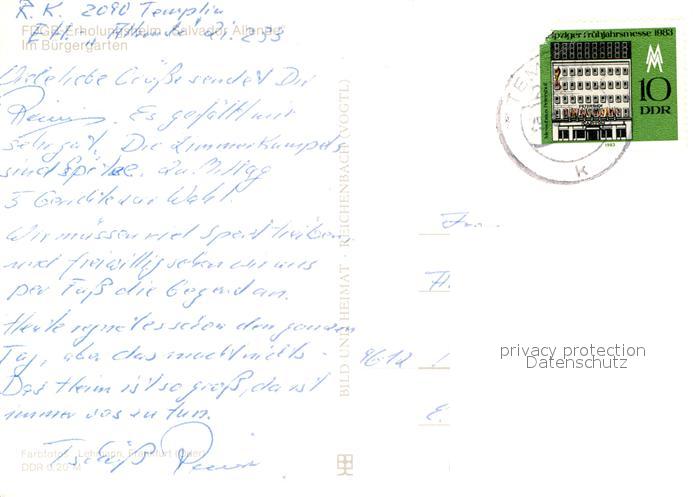 R.K. 2090 Templin
FDGB-Erholungsheim "Salvador Allende"
Im Bürgergarten
233
Viele liebe Grüße sendet Dir
Es gefällt mir
sehr gut. Die Zimmerkumpels
sind Spitze. Zu Mittag
5 Gerichte zur Wahl.
Wir müssen viel Sport treiben
und freiwillig sehen wir uns
per Fuß die Gegend an.
Heute regnet es schon den ganzen
Tag, aber das macht nichts.
Das Heim ist so groß, da ist
immer was zu tun.
Tschüß
Farbfotos: Lehmann, Frankfurt (Oder)
DDR 0,20 M
BILD UND HEIMAT · REICHENBACH (VOGTL)
Leipziger Frühjahrsmesse 1983
MM
10
DDR
PETERSHOF
1983
TEMPLIN
k
Fr
H.
E.
privacy protection
Datenschutz